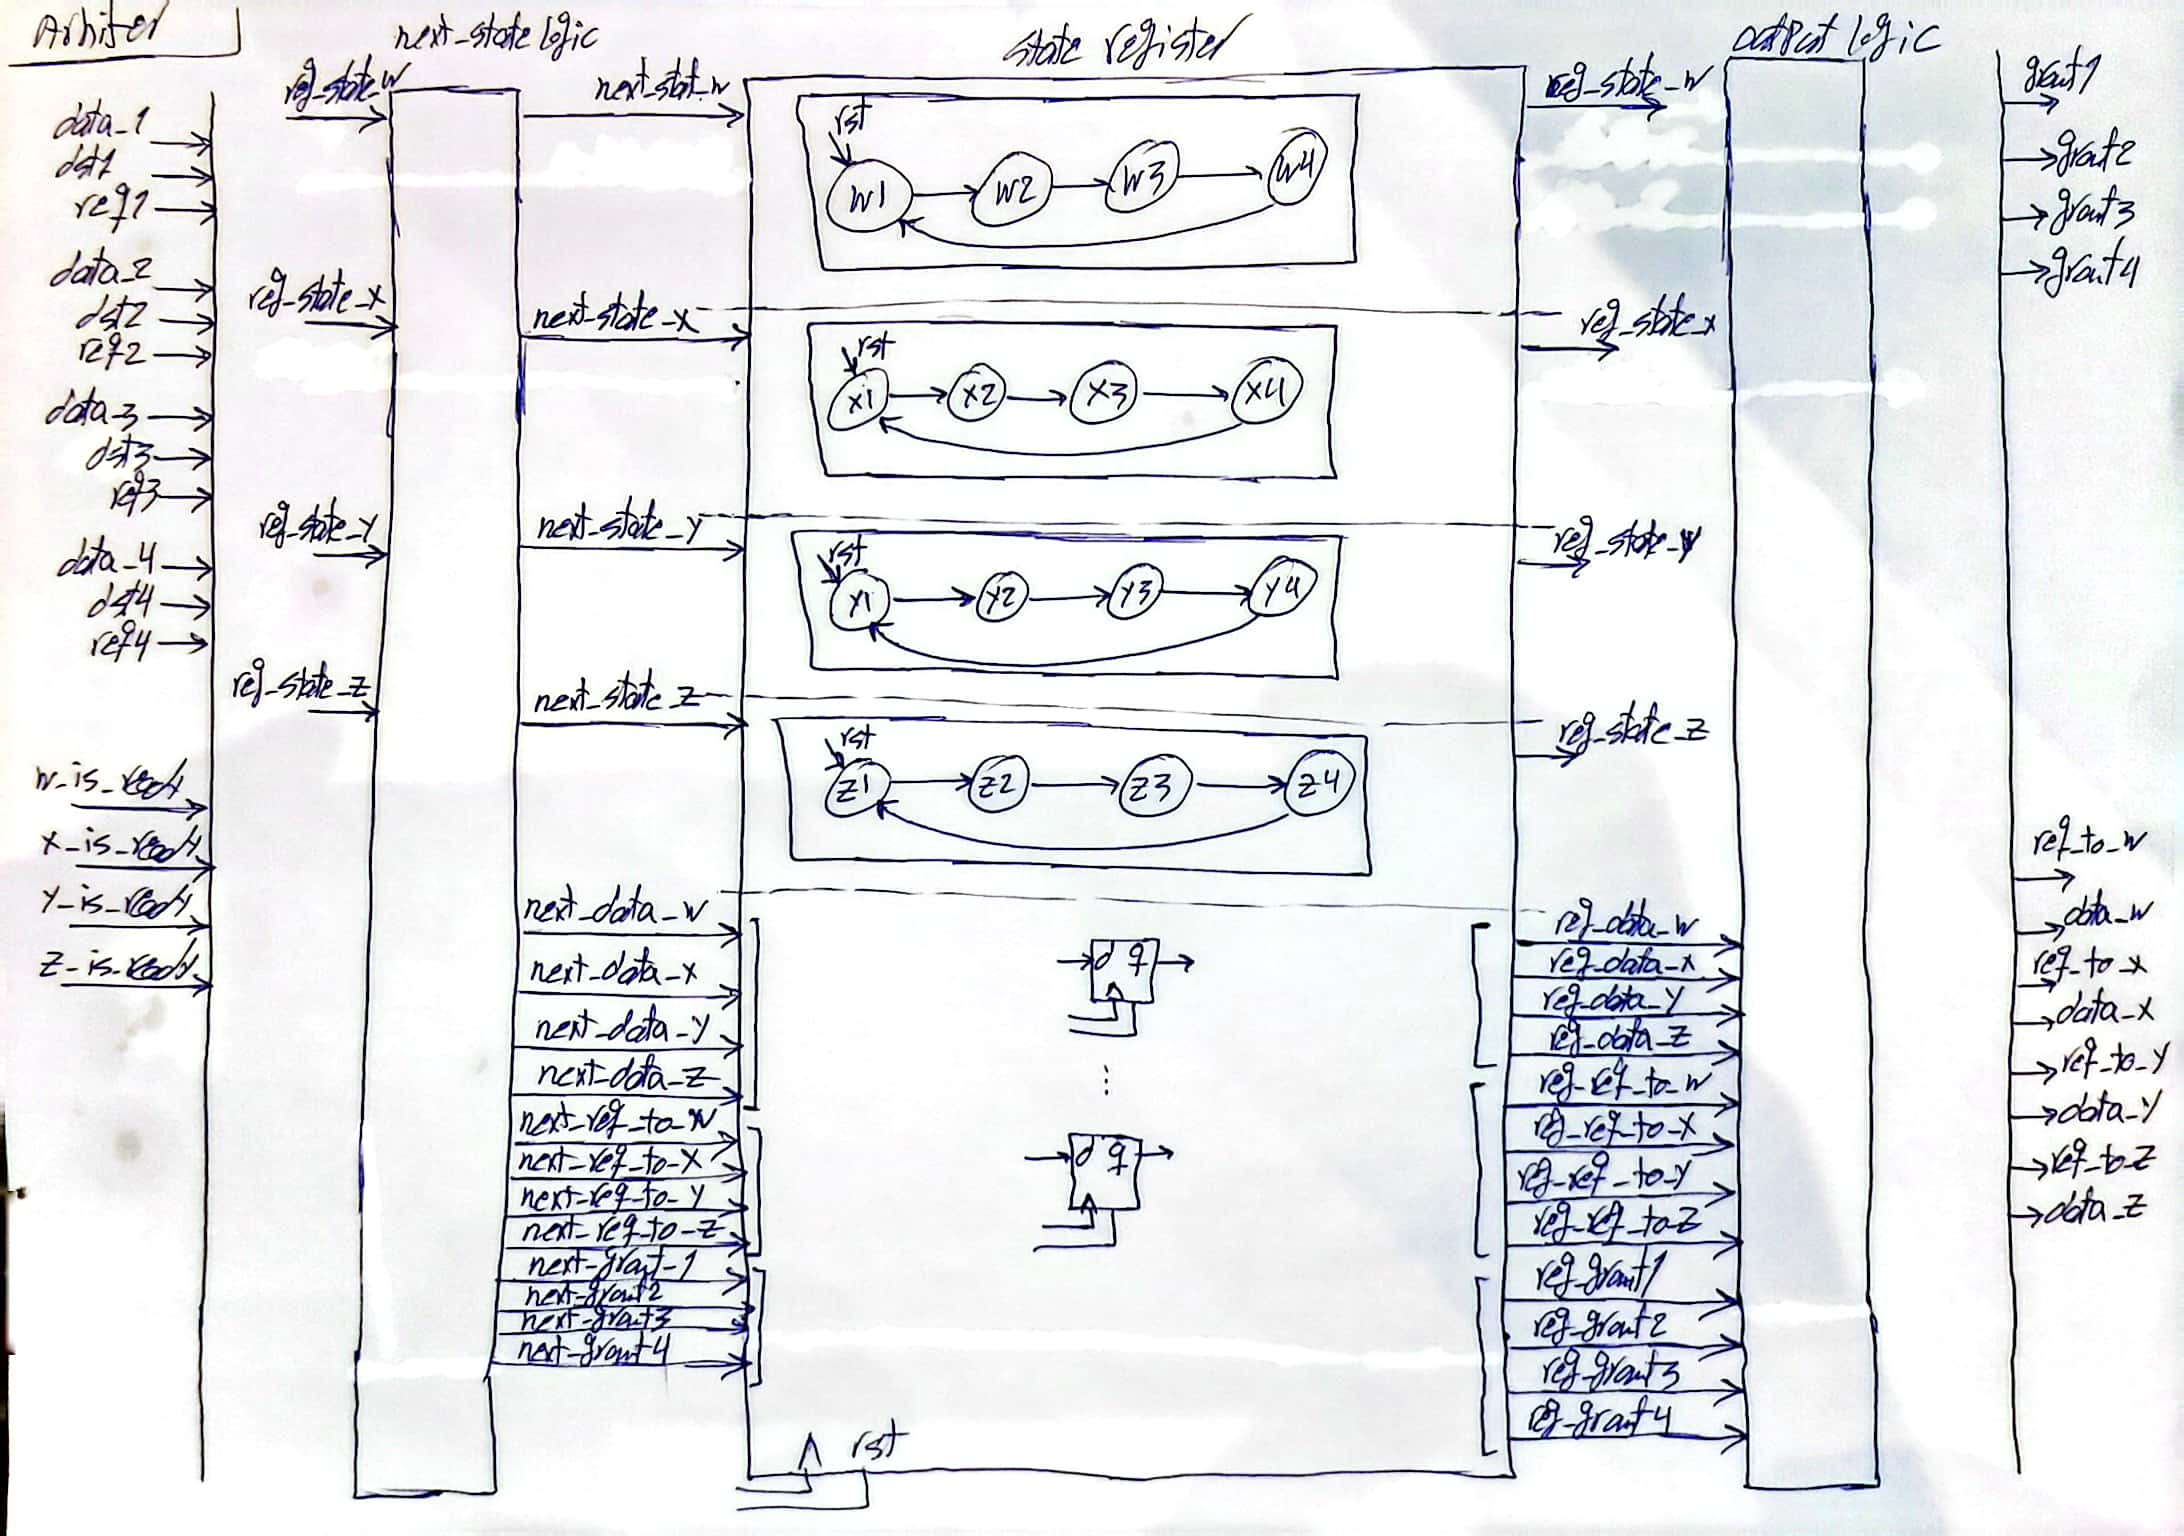 Arbiter
next_state logic
state register
output logic
data_1
dst1
req1
data_2
dst2
req2
data_3
dst3
req3
data_4
dst4
req4
w_is_ready
x_is_ready
y_is_ready
z_is_ready
reg_state_w
reg_state_x
reg_state_y
reg_state_z
next_stat_w
next_state_x
next_state_y
next_state_z
next_data_w
next_data_x
next_data_y
next_data_z
next_req_to_w
next_req_to_x
next_req_to_y
next_req_to_z
next_grant_1
next_grant2
next_grant3
next_grant4
rst
w1 w2 w3 w4
rst
x1 x2 x3 x4
rst
y1 y2 y3 y4
rst
z1 z2 z3 z4
d q
⋮
d q
rst
reg_state_w
reg_state_x
reg_state_y
reg_state_z
reg_data_w
reg_data_x
reg_data_y
reg_data_z
reg_req_to_w
reg_req_to_x
reg_req_to_y
reg_req_to_z
reg_grant1
reg_grant2
reg_grant3
reg_grant4
grant1
grant2
grant3
grant4
req_to_w
data_w
req_to_x
data_x
req_to_y
data_y
req_to_z
data_z